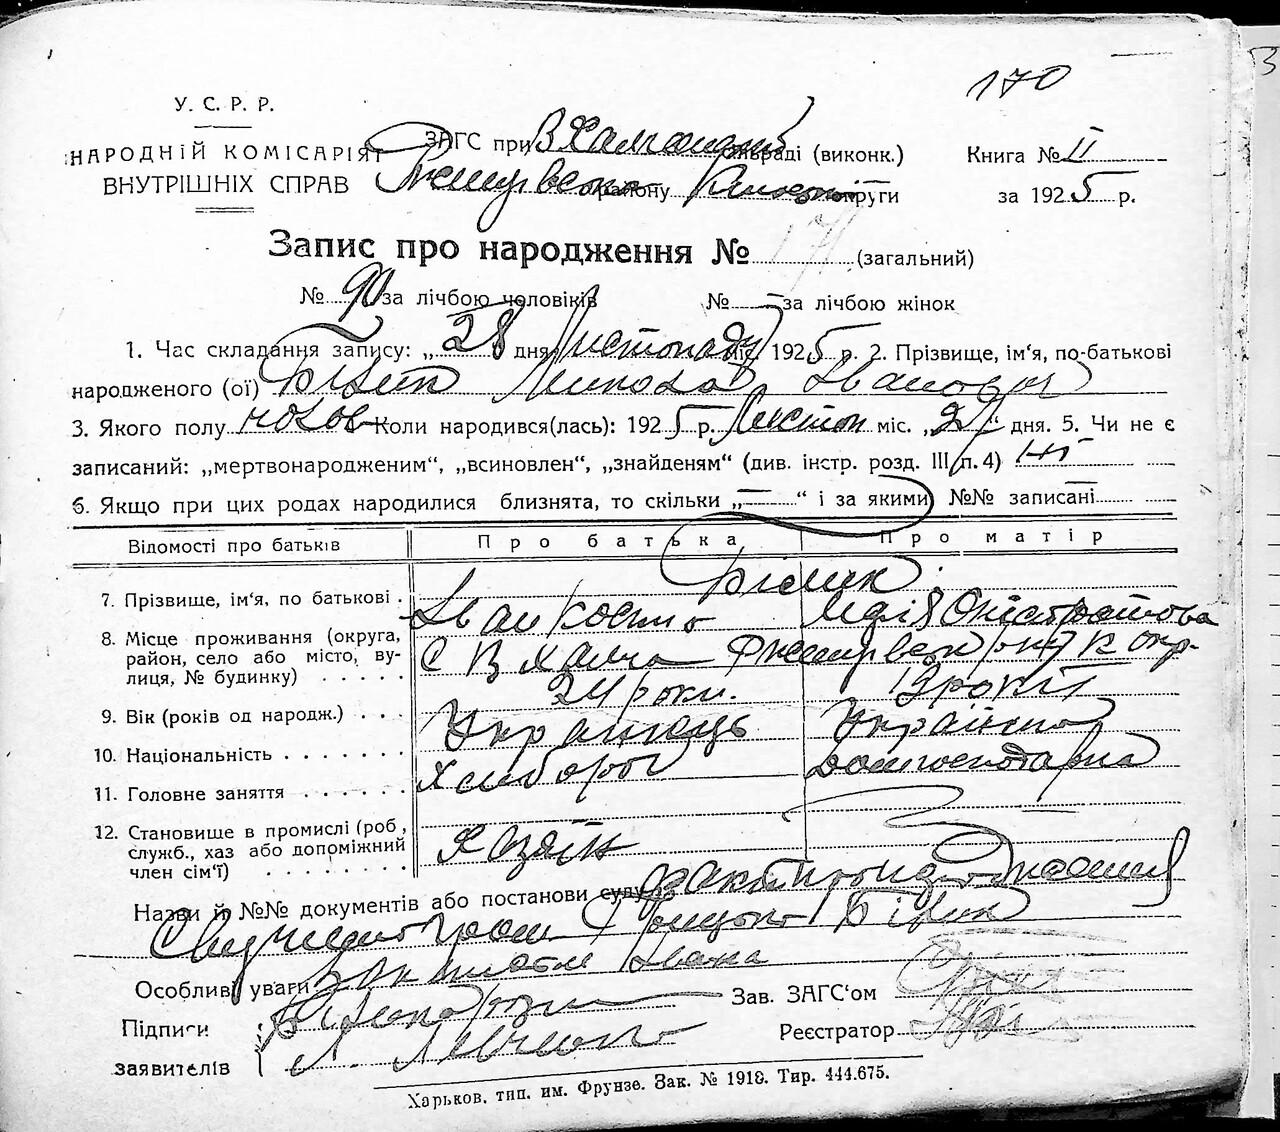 170
У. С. Р. Р.
НАРОДНІЙ КОМІСАРІЯТ
ВНУТРІШНІХ СПРАВ
ЗАГС при В Халчанській сільраді (виконк.)
району округи
Книга № II
за 1925 р.
Запис про народження № 171 (загальний)
№ 90 за лічбою чоловіків № — за лічбою жінок
1. Час складання запису: „28 дня Листопаду міс. 1925 р. 2. Прізвище, ім‘я, по-батькові
народженого (ої) Білик Микола Іванович
3. Якого полу чолов Коли народився(лась): 1925 р. Листоп міс. „21 дня. 5. Чи не є
записаний: „мертвонародженим“, „всиновлен“, „знайденям“ (див. інстр. розд. III п. 4) ні
6. Якщо при цих родах народилися близнята, то скільки „—“ і за якими №№ записані
Відомості про батьків Про батька Про матір
Білик
7. Прізвище, ім‘я, по батькові . Іван Косто Марія
8. Місце проживання (округа, район, село або місто, вулиця, № будинку) . . . . . С В Халча Ржищівськ рну К окр.
9. Вік (років од народж.) . . . 24 роки.
10. Національність . . . . . . Українець Українка
11. Головне заняття . . . . . . Хлібороб Домгосподарка
12. Становище в промислі (роб, служб., хаз або допоміжний член сім‘ї) . . . . . . . . Хазяїн
Назви й №№ документів або постанови суду
Грицько Білик
Особливі уваги Івана
Підписи
заявителів
Зав. ЗАГС‘ом
Реєстратор
Харьков, тип. им. Фрунзе. Зак. № 1918. Тир. 444.675.